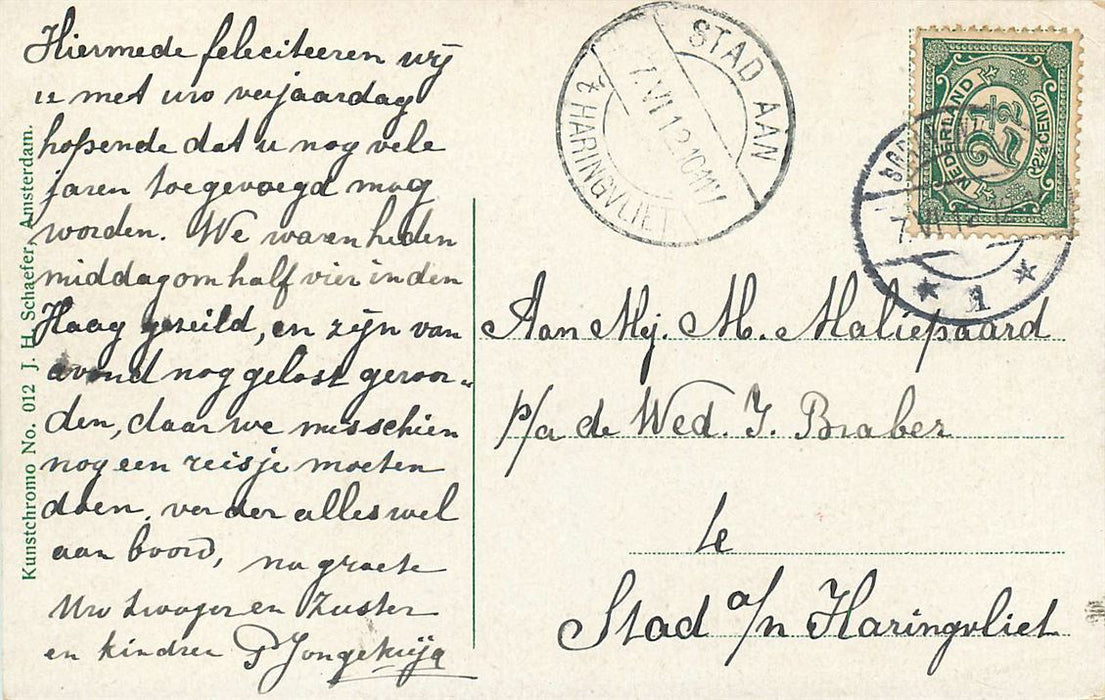 Hiermede feleciteeren wij
u met uw verjaardag
hopende dat u nog vele
jaren toegevoegd mag
worden. We waren heden
middag om half vier in den
Haag gezeild, en zijn van
avond nog gelost geroor„
den, daar we misschien
nog een reisje moeten
doen, verder alles wel
aan boord, na groete
Uw Zwager en Zuster
en kindren P Jongekrijg
Kunstchromo No. 012 J. H. Schaefer, Amsterdam.
STAD AAN
'T HARINGVLIET
7.VI.12.10-11V
NEDERLAND
2½
(2½ CENT)
7.VI.12
1
Aan Mej. M. Maliepaard
p/a de Wed. J. Braber
te
Stad a/n Haringvliet